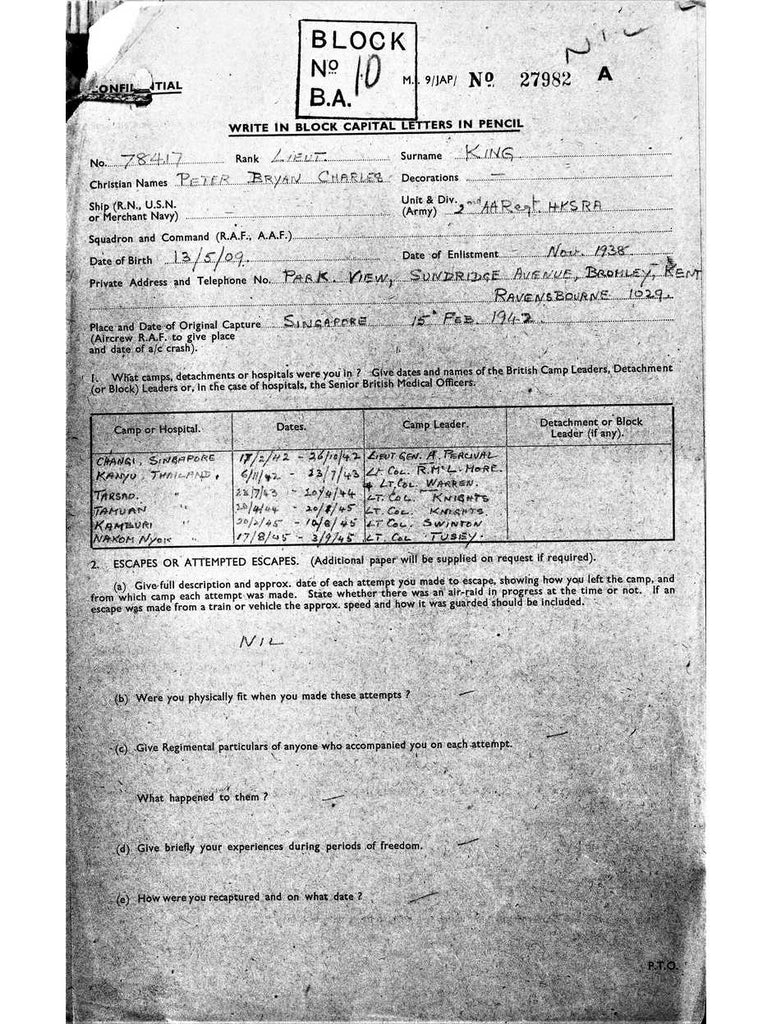 NIL
BLOCK
Nº 10
B.A.
M.I. 9/JAP/ Nº 27982 A
WRITE IN BLOCK CAPITAL LETTERS IN PENCIL
No. 78417 Rank LIEUT. Surname KING
Christian Names PETER BRYAN CHARLES Decorations —
Ship (R.N., U.S.N.
or Merchant Navy) —
Unit & Div.
(Army) 2nd AA Regt. HKSRA
Squadron and Command (R.A.F., A.A.F.)
Date of Birth 13/5/09. Date of Enlistment Nov. 1938
Private Address and Telephone No. PARK VIEW, SUNDRIDGE AVENUE, BROMLEY, KENT
RAVENSBOURNE 1029.
Place and Date of Original Capture SINGAPORE 15th FEB. 1942.
(Aircrew R.A.F. to give place
and date of a/c crash).
1. What camps, detachments or hospitals were you in ? Give dates and names of the British Camp Leaders, Detachment
(or Block) Leaders or, in the case of hospitals, the Senior British Medical Officers.
Camp or Hospital. Dates. Camp Leader. Detachment or Block
Leader (if any).
CHANGI, SINGAPORE /2/42 - 26/10/42 LIEUT GEN. A. PERCIVAL
KANYU, THAILAND, 6/11/42 - 23/7/43 LT COL. R. McL. MORE.
& LT. COL. WARREN.
TARSAO. " 23/7/43 - 20/4/44 LT. COL. KNIGHTS
TAMUAN " 20/4/44 - LT COL. KNIGHTS.
KAMBURI " 20/2/45 - 10/8/45 LT COL. SWINTON
NAKOM NYOK " 17/8/45 - 3/9/45 LT. COL
2. ESCAPES OR ATTEMPTED ESCAPES. (Additional paper will be supplied on request if required).
(a) Give full description and approx. date of each attempt you made to escape, showing how you left the camp, and
from which camp each attempt was made. State whether there was an air-raid in progress at the time or not. If an
escape was made from a train or vehicle the approx. speed and how it was guarded should be included.
NIL
(b) Were you physically fit when you made these attempts ? —
(c) Give Regimental particulars of anyone who accompanied you on each attempt. —
What happened to them ? —
(d) Give briefly your experiences during periods of freedom. —
(e) How were you recaptured and on what date ? —
P.T.O.